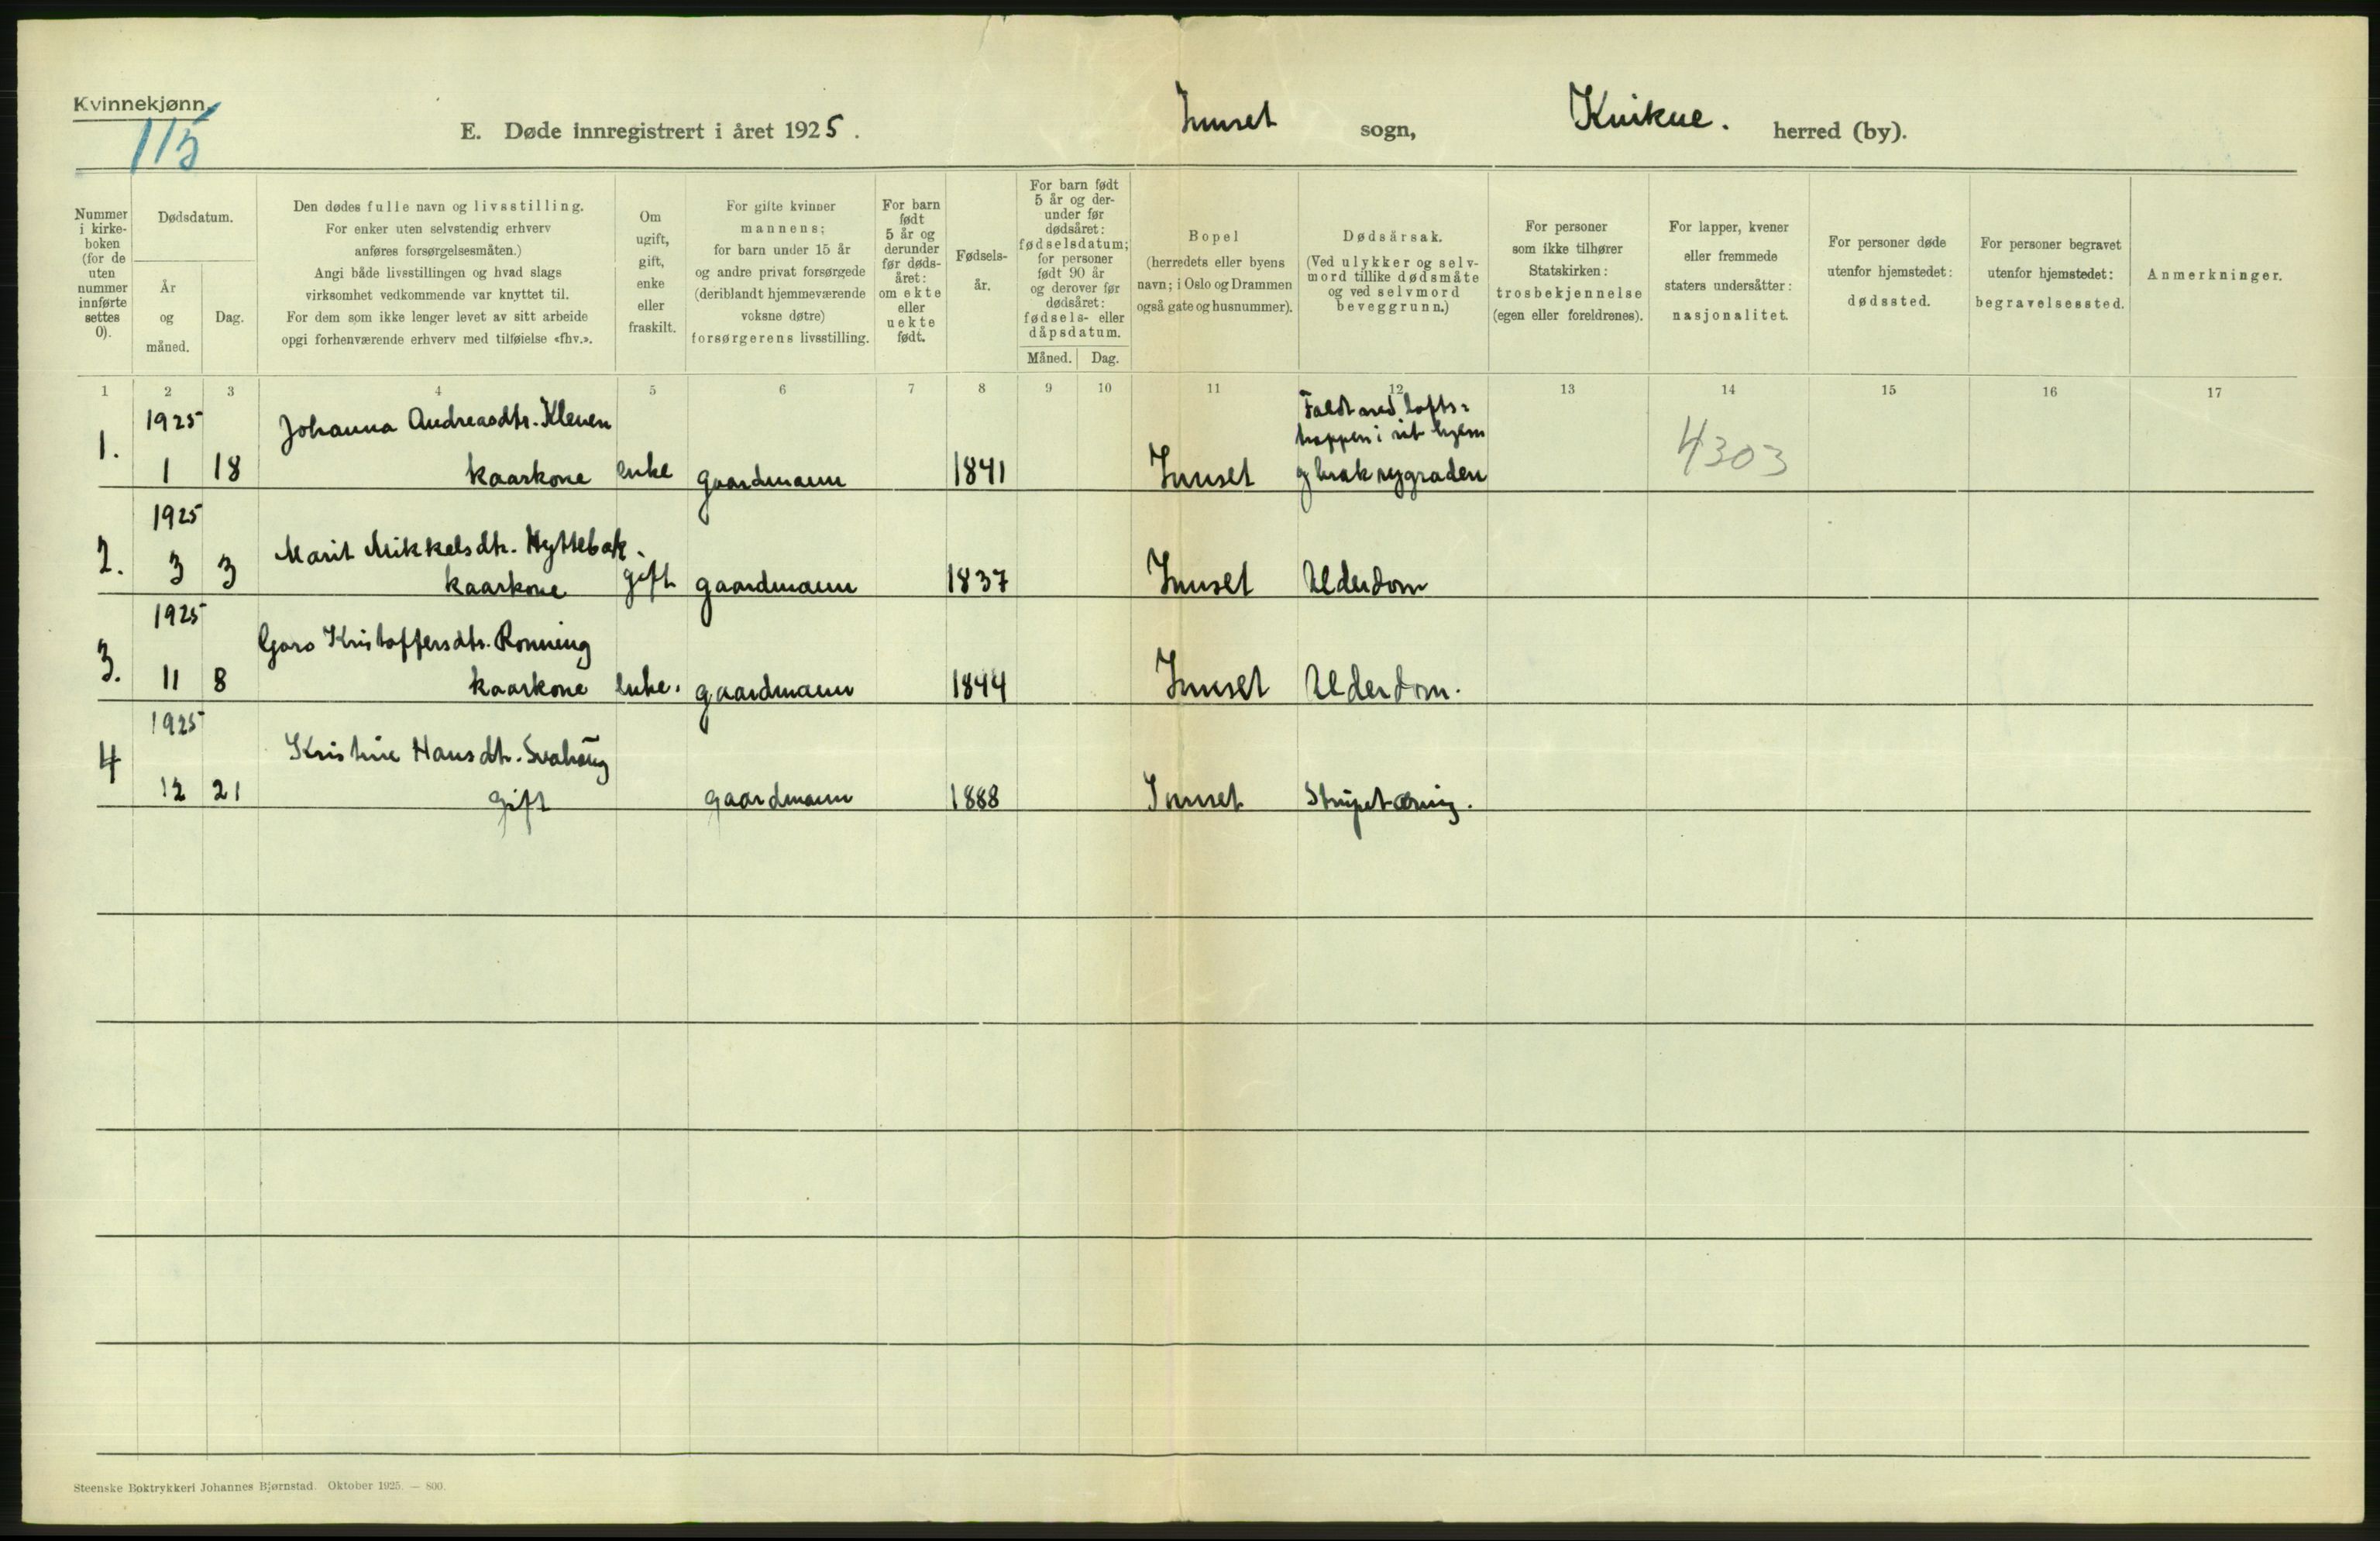 Kvinnekjønn.
115
E. Døde innregistrert i året 1925.
Innset sogn,
Kvikne. herred (by).
Nummer i kirke-boken (for de uten nummer innførte settes 0).
Dødsdatum.
År og måned.
Dag.
Den dødes fulle navn og livsstilling.
For enker uten selvstendig erhverv
anføres forsørgelsesmåten.)
Angi både livsstillingen og hvad slags
virksomhet vedkommende var knyttet til.
For dem som ikke lenger levet av sitt arbeide
opgi forhenværende erhverv med tilføielse «fhv.».
Om ugift, gift, enke eller fraskilt.
For gifte kvinner
mannens;
for barn under 15 år
og andre privat forsørgede
(deriblandt hjemmeværende
voksne døtre)
forsørgerens livsstilling.
For barn født 5 år og derunder før døds-året: om ekte eller uekte født.
Fødsels-år.
For barn født
5 år og der-
under før
dødsåret:
fødselsdatum;
for personer
født 90 år
og derover før
dødsåret:
fødsels- eller
dåpsdatum.
Måned. Dag.
Bopel
(herredets eller byens
navn; i Oslo og Drammen
også gate og husnummer).
Dødsårsak.
(Ved ulykker og selv-
mord tillike dødsmåte
og ved selvmord
beveggrunn.)
For personer
som ikke tilhører
Statskirken:
trosbekjennelse
(egen eller foreldrenes).
For lapper, kvener
eller fremmede
staters undersåtter:
nasjonalitet.
For personer døde
utenfor hjemstedet:
dødssted.
For personer begravet
utenfor hjemstedet:
begravelsessted.
Anmerkninger.
1 2 3 4 5 6 7 8 9 10 11 12 13 14 15 16 17
1925 Johanna Andreasdtr. Kleven Faldt ned lofts=
1. trappen i sit hjem
1 18 kaarkone enke gaardmann 1841 Innset og brak rygraden 4303
1925
2. Marit Mikkelsdtr. Hyttebak.
3 3 kaarkone gift gaardmann 1837 Innset Alderdom
1925
3. Goro Kristoffersdtr. Rønning
11 8 kaarkone enke. gaardmann 1844 Innset Alderdom.
1925
4 Kristine Hansdtr.
12 21 gift gaardmann 1888 Innset Strupetæring.
Steenske Boktrykkeri Johannes Bjørnstad. Oktober 1925. — 800.